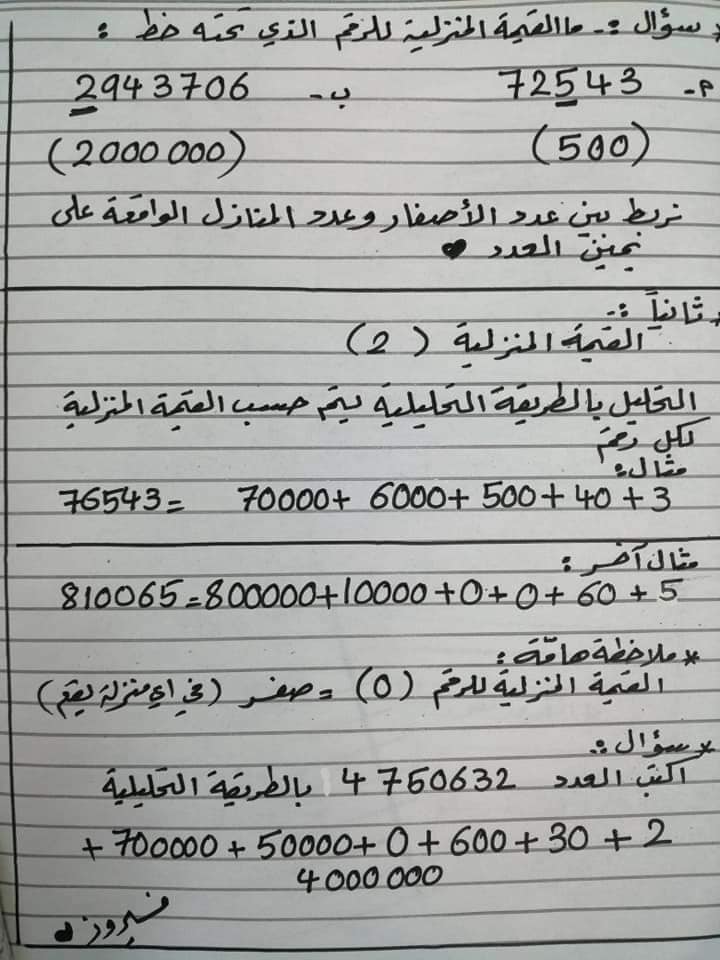 * سؤال :- ما القيمة المنزلية للرقم الذي تحته خط :
م- 72543 ب- 2943706
(500) (2000 000)
نربط بين عدد الأصفار وعدد المنازل الواقعة على
يمين العدد
* ثانياً :-
القيمة المنزلية (2)
التحليل بالطريقة التحليلية يتم حسب القيمة المنزلية
لكل رقم
مثال:
76543 = 70000 + 6000 + 500 + 40 + 3
مثال آخر :
810065 = 800000 + 10000 + 0 + 0 + 60 + 5
* ملاحظة هامّة :
القيمة المنزلية للرقم (0) = صفر (في اي منزلة يقع)
* سؤال :-
اكتب العدد 4750632 بالطريقة التحليلية
+ 700000 + 50000 + 0 + 600 + 30 + 2
4000000
فيروز